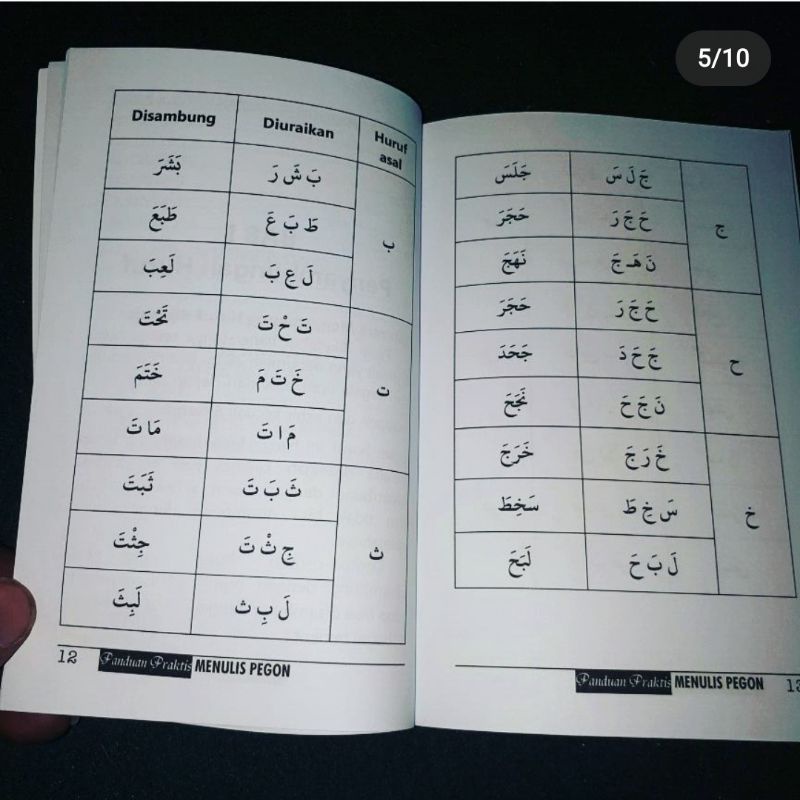 5/10
Disambung Diuraikan Huruf asal
بَ شَ رَ بَشَرَ
ب طَ بَ عَ طَبَعَ
لَ عِ بَ لَعِبَ
تَ حْ تَ تَحْتَ
ت خَ تَ مَ خَتَمَ
مَ ا تَ مَاتَ
ثَ بَ تَ ثَبَتَ
ث جِ ثْ تَ جِثْتَ
لَ بِ ث لَبِثَ
12 Panduan Praktis MENULIS PEGON
جَ لَ سَ جَلَسَ
ج حَ جَ رَ حَجَرَ
نَ هَـ جَ نَهَجَ
حَ جَ رَ حَجَرَ
ح جَ حَ دَ جَحَدَ
نَ جَ حَ نَجَحَ
خَ رَ جَ خَرَجَ
خ سَ خِ طَ سَخِطَ
لَ بَ حَ لَبَحَ
Panduan Praktis MENULIS PEGON 13